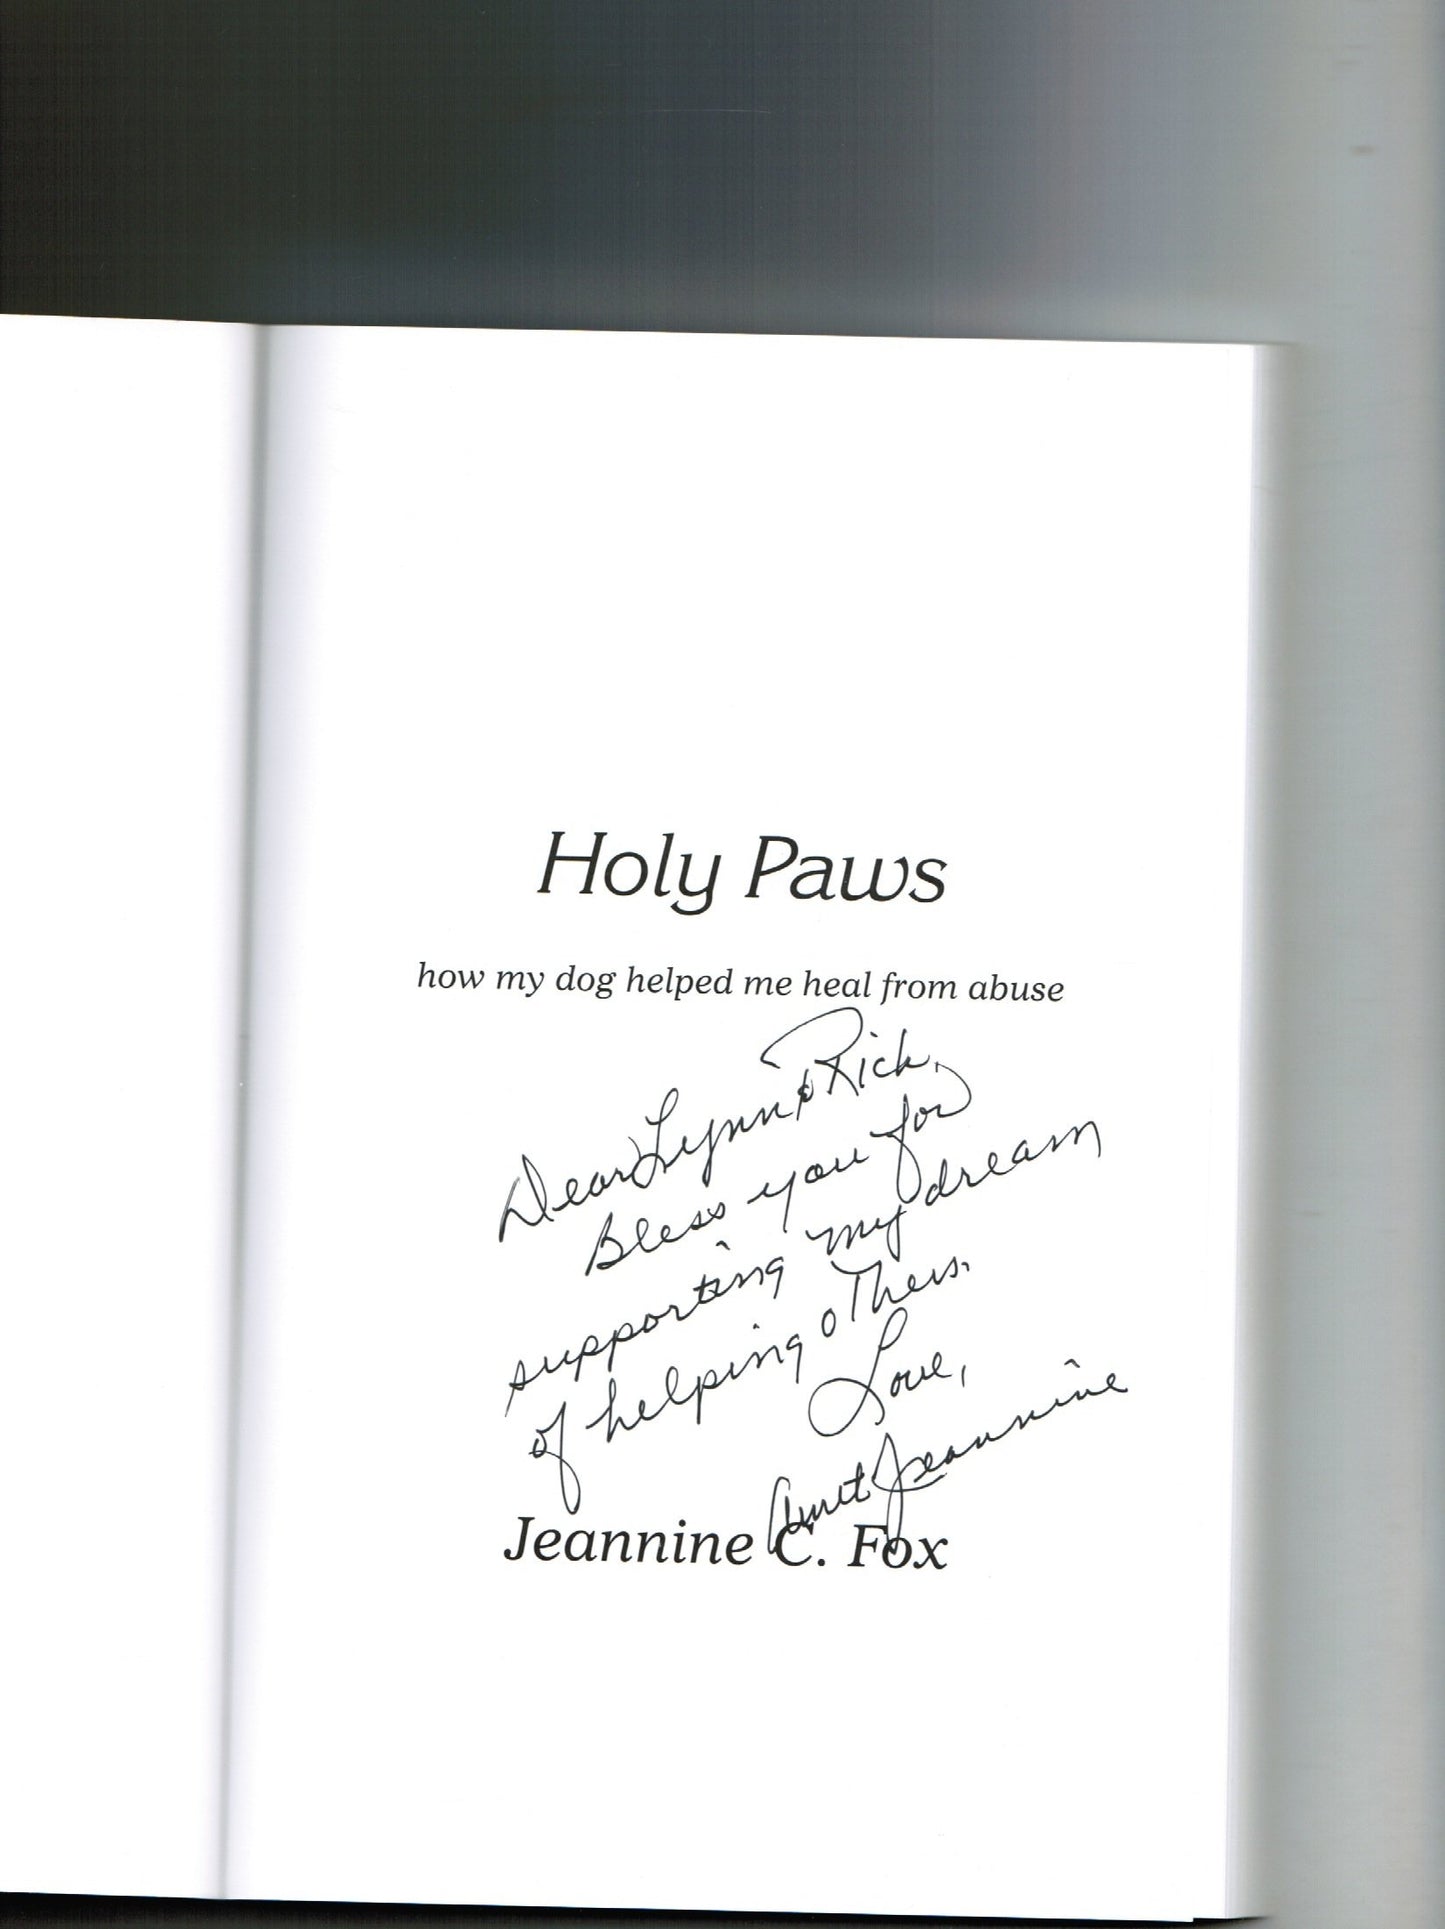 Holy Paws
how my dog helped me heal from abuse
Dear Lynn & Rick,
Bless you for
supporting my dream
of helping others.
Love,
Aunt Jeannine
Jeannine C. Fox